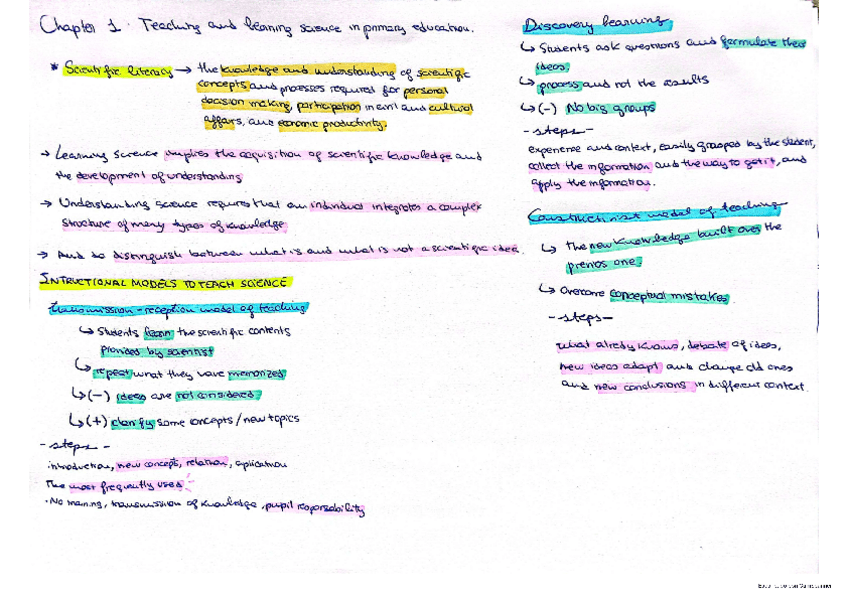 Chapter 1. Teaching and learning science in primary education.
* Scientific literacy → the knowledge and understanding of scientific
concepts and processes required for personal
decision making, participation in civil and cultural
affairs, and economic productivity.
→ Learning science implies the acquisition of scientific knowledge and
the development of understanding
→ Understanding science requires that an individual integrates a complex
structure of many types of knowledge
→ And to distinguish between what is and what is not a scientific idea.
INTRUCTIONAL MODELS TO TEACH SCIENCE
transmission-reception model of teaching
↳ Students learn the scientific contents
provided by scientist
↳ repeat what they have memorized
↳ (-) ideas are not considered
↳ (+) clarify some concepts / new topics
- steps -
introduction, new concept, relation, aplication
The most frequently used
· No maning, transmission of knowledge, pupil resporsability
Discovery learning
↳ Students ask questions and formulate their
ideas.
↳ process and not the results
↳ (-) No big groups
- steps -
experience and context, easily grasped by the student,
collect the information and the way to get it, and
apply the information.
Constructivist model of teaching
↳ The new knowledge built over the
previos one.
↳ Overcome conceptual mistakes
- steps -
what already knows, debate of ideas,
new ideas adapt and change old ones
and new conclusions in different context.